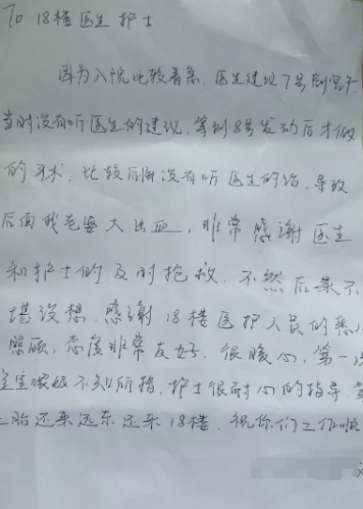 To 18楼医生护士
因为入院比较着急,医生建议7号剖宫产
当时没有听医生的建议,等到8号发动后才做
的手术,比较后悔没有听医生的话,导致
后面我老婆大出血,非常感谢医生
和护士的及时抢救,不然后果不
堪设想,感谢18楼医护人员的悉心
照顾,态度非常友好,很暖心,第一次
宝宝喂奶不知所措,护士很耐心的指导,
二胎还来远东还来18楼,祝你们工作顺